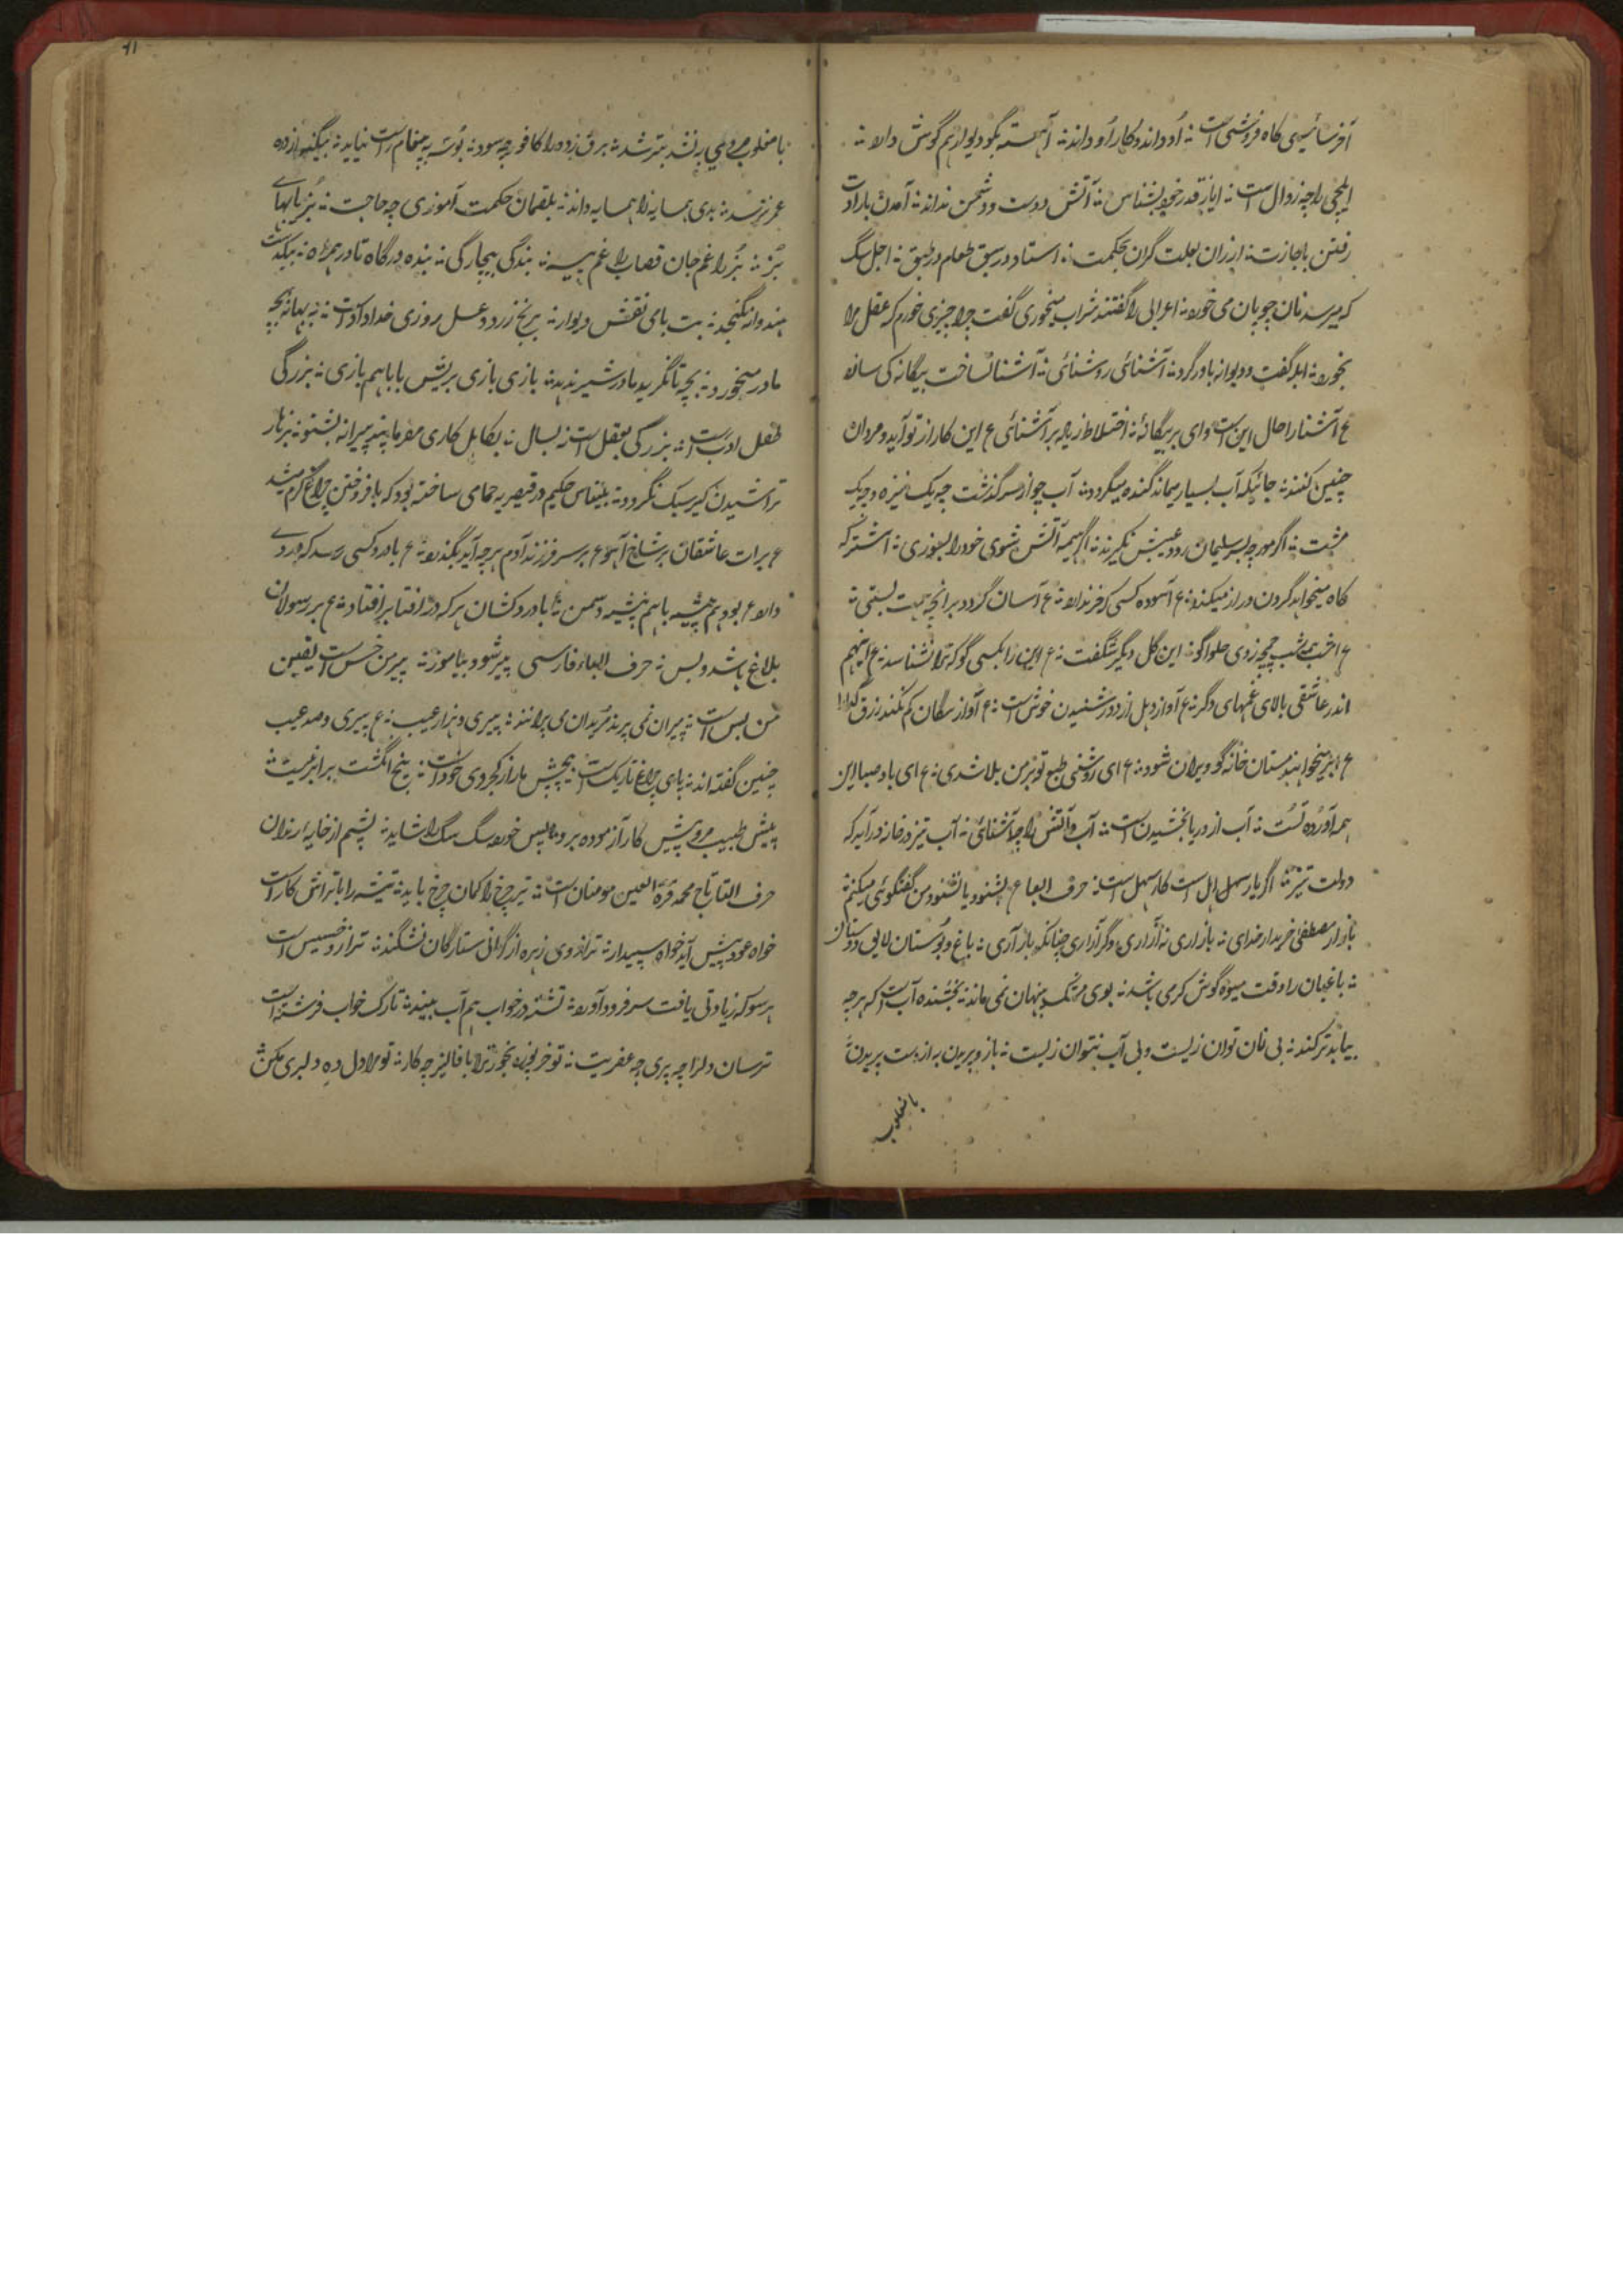 آخر سائیسی کاه فروشی است ؞ او داند و کار او داند ؞ آهسته بگو دیوار هم گوش دارد ؞
ایلچی را چه زوال است ؞ ایاز قدر خود بشناس ؞ آتش دوست و دشمن نداند ؞ آمدن بارادت
رفتن باجازت ؞ ارزان بعلت گران بحکمت ؞ استاد در سبق طعام در طبق ؞ اجل سگ
که میرسد نان چوپان می خورد ؞ اعرابی را گفتند شراب میخوری گفت چرا چیزی خورم که عقل مرا
بخورد ؞ ابله گفت و دیوانه باور کرد ؞ آشنائی روشنائی ؞ آشنا را ساخت بیگانه کی ساند
ع آشنا را حال این است وای بر بیگانه ؞ اختلاط زیاده بر آشنائی ع این کار از تو آید و مردان
چنین کنند ؞ جائیکه آب بسیار میماند گنده میگردد ؞ آب چو از سر گذشت چه یک نیزه و چه یک
مشت ؞ اگر مورچه بر سر سلیمان رود عیبش نگیرند ؞ اگر همه آتش شوی خود را بسوزی ؞ اشتر که
کاه میخواهد گردن دراز میکند ؞ ع آسوده کسی که خر ندارد ؞ ع آسان گردد بر آنچه همت بستی ؞
ع امشب همه شب چمچه زدی حلوا کو ؞ این گل دیگر شگفت ؞ ع این را بکسی گو که ترا نشناسد ؞ ع اینهم
اندر عاشقی بالای غمهای دگر ؞ ع آواز دهل از دور شنیدن خوش است ؞ ع آواز سگان کم نکند رزق گدا را
ع ابر میخواهند مستان خانه گو ویران شود ؞ ع ای روشنی طبع تو بر من بلا شدی ؞ ع ای باد صبا این
همه آورده تست ؞ آب از دریا بخشیدن است ؞ آب و آتش را چه آشنائی ؞ آب تیز در خانه در آید که
دولت تیز ؞ اگر یار سهل است کار سهل است ؞ حرف الباء ع بشنود یا نشنود من گفتگوئی میکنم
بازار مصطفی خریدار خدای ؞ بازاری نه آزاری و گر آزاری چنانکه باز آری ؞ باغ و بوستان لایق دوستان
؞ باغبان را وقت میوه گوش کر می باشد ؞ بوی مشک پنهان نمی ماند ؞ بخشنده آب است که هر چه
بیابد تر کند ؞ بی نان توان زیست و بی آب نتوان زیست ؞ باز و پریدن به از دست پریدن
با مغلوب
با مغلوب هر دمی بد نشد بتر شد ؞ برق زده را کافور چه سود ؞ بوسه به پیغام راست نیاید ؞
عمر ترسد ؞ بدی همسایه را همسایه داند ؞ بلقمان حکمت آموزی چه حاجت ؞ بز را بهای
بز ؞ بز را غم جان قصاب را غم پیه ؞ بندگی بیچارگی ؞ بنده درگاه تا در همراه ؞ بیکدست
هندوانه نگنجد ؞ بت بای نقش دیوار ؞ برنج زرد و عسل روزی خداداد است ؞ به بهانه بچه
مادر میخورد ؞ بچه تا نگرید مادر شیر ندهد ؞ بازی بازی بریش بابا هم بازی ؞ بزرگی
طفل ادب است ؞ بزرگی بعقل است نه بسال ؞ بکاهل کاری مفرما پند پیرانه بشنو ؞
تراشیدن کیر سبک نگردد ؞ بلیناس حکیم در قیصریه حمامی ساخته بود که بافروختن چراغ گرم میشد
ع برات عاشقان بر شاخ آهو ع بر سر فرزند آدم هر چه آید بگذرد ؞ ع با درد کسی رسد که دردی
دارد ع بود هم پیشه با هم پیشه دشمن ؞ با دردکشان هر که در افتاد بر افتاد ؞ ع بر رسولان
بلاغ باشد و بس ؞ حرف الباء فارسی پیر شود بیاموز ؞ پیر من خس است یقین
من بس است ؞ پیران نمی پرند مریدان می پرانند ؞ پیری و هزار عیب ؞ ع پیری و صد عیب
چنین گفته اند ؞ پای چراغ تاریک است ؞ پیچش مار از کجروی خود است ؞ پنج انگشت برابر نیست ؞
پیش طبیب مرو پیش کار آزموده برو ؞ پس خورده سگ سگ را شاید ؞ پشم از خایه رندان
حرف التاء تاج محمد قرة العین مومنان است ؞ تیر چرخ را کمان چرخ باید ؞ تیشه را با تراش کار است
خواه عود پیش آید خواه سپیدار ؞ ترازوی زهره از گرانی ستارگان نشکند ؞ ترازو خسیس است
هر سو که زیادتی یافت سر فرود آورد ؞ تشنه در خواب هم آب بیند ؞ تارک خواب فرشته است
ترسان دل را چه پری چه عفریت ؞ تو خربوزه بخور ترا با فالیز چه کار ؞ تو مرا دل ده و دلبری مکن